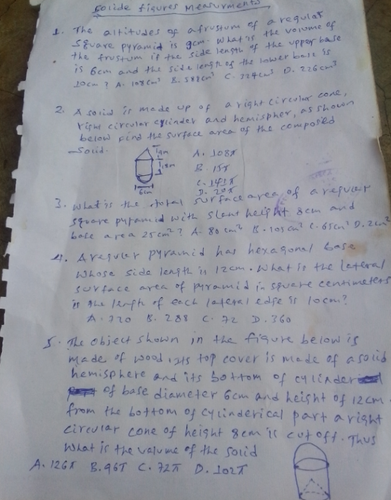 Solide figures Measurments
1. The altitudes of a frustum of a regular
square pyramid is 9cm. What is the volume of
the frustum is the side length of the upper base
is 6cm and the side length of the lower base is
10cm? A. 108cm³ B. 588cm³ C. 324cm³ D. 236cm³
2. A solid is made up of a right circular cone,
right circular cylinder and hemispher, as shown
below find the surface area of the composed
solid.
4m
6cm
A. 108π
B. 15π
C. 143π
D. 24π
3. What is the total surface area of a reguler
square pyramid with slant height 8cm and
base area 25cm²? A. 80cm² B. 105cm² C. 65cm² D. 2cm²
4. A reguler pyramid has hexagonal base
whose side length is 12cm. What is the lateral
surface area of pyramid in square centimeters
is the length of each lateral edge is 10cm?
A. 220 B. 288 C. 72 D. 360
5. The object shown in the figure below is
made of wood, its top cover is made of a solid
hemisphere and its bottom of cylinder
of base diameter 6cm and height of 12cm.
from the bottom of cylinderical part a right
circular cone of height 8cm is cut off. Thus
What is the volume of the solid
A. 126π B. 96π C. 72π D. 102π